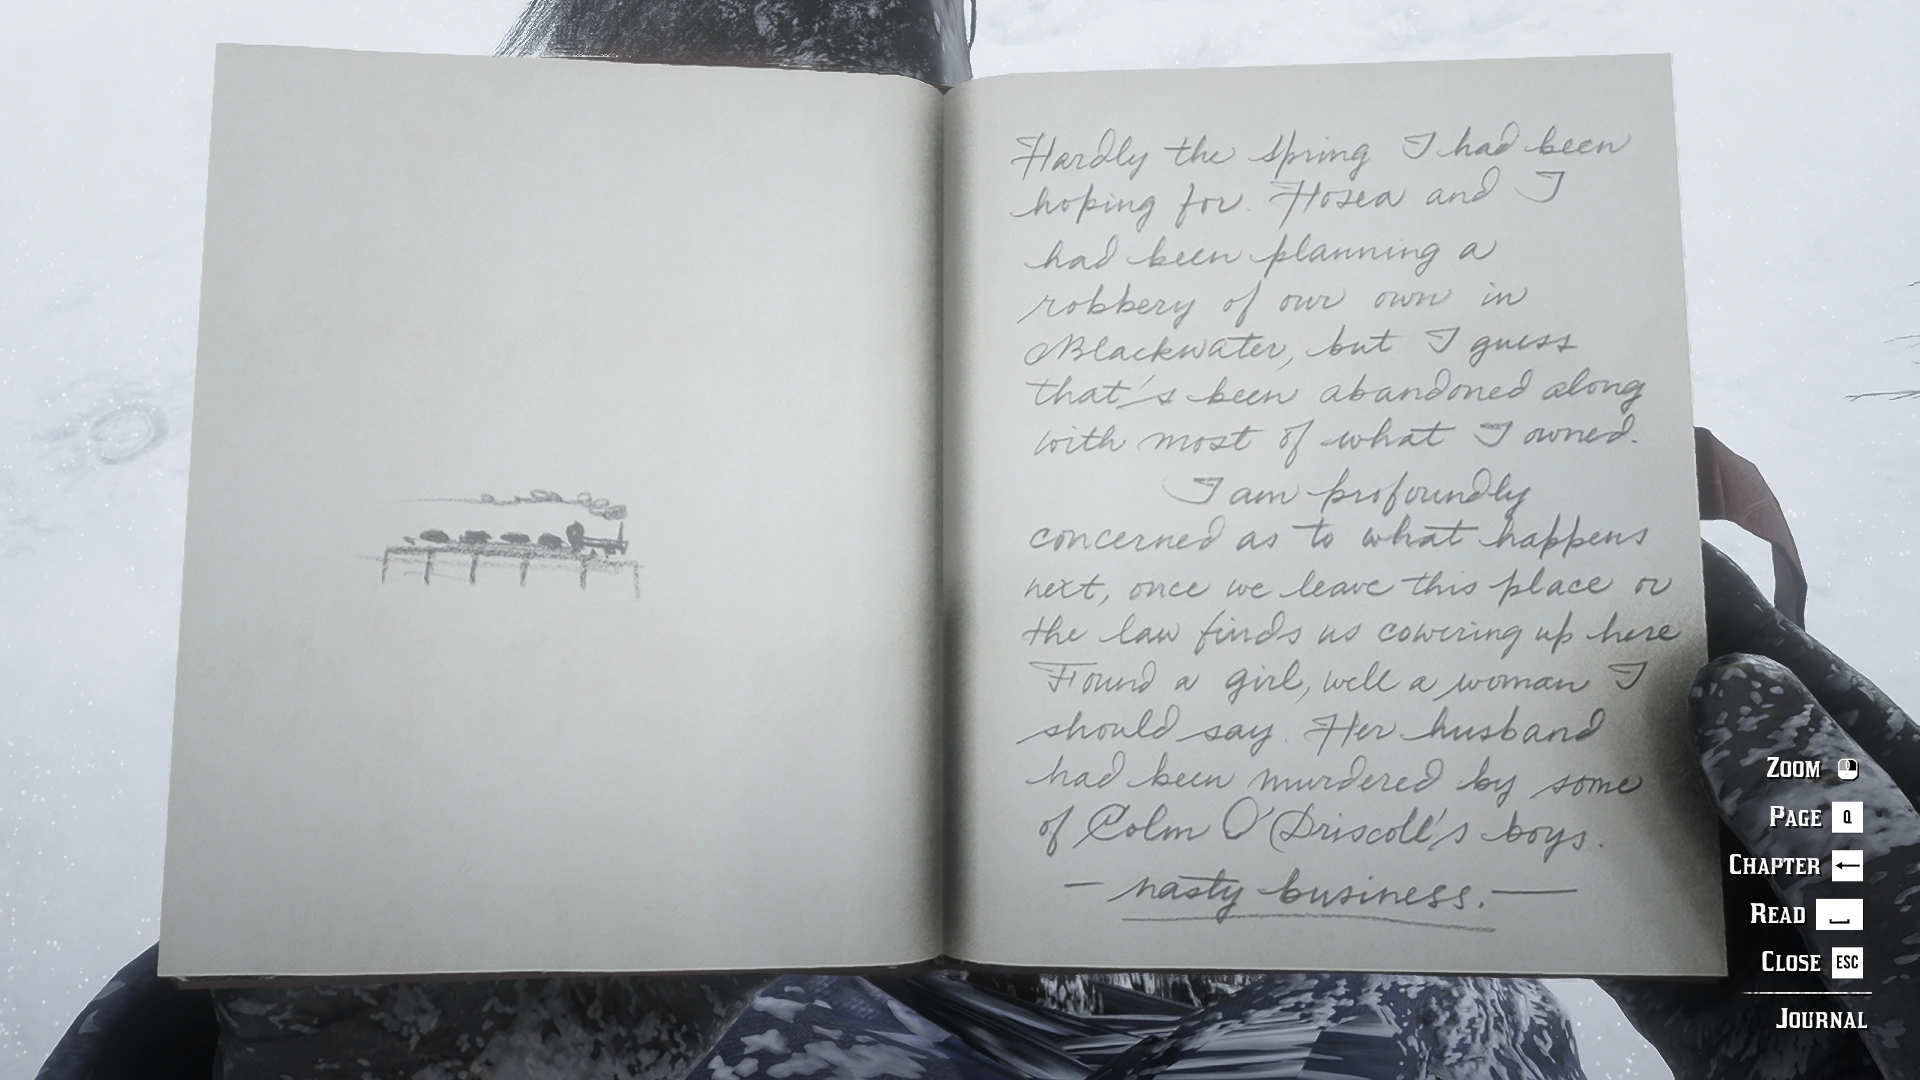 Hardly the spring I had been
hoping for. Hosea and I
had been planning a
robbery of our own in
Blackwater, but I guess
that's been abandoned along
with most of what I owned.
I am profoundly
concerned as to what happens
next, once we leave this place or
the law finds us cowering up here
Found a girl, well a woman I
should say. Her husband
had been murdered by some
of Colm O'Driscoll's boys.
— nasty business. —
ZOOM
PAGE Q
CHAPTER ←
READ
CLOSE ESC
JOURNAL